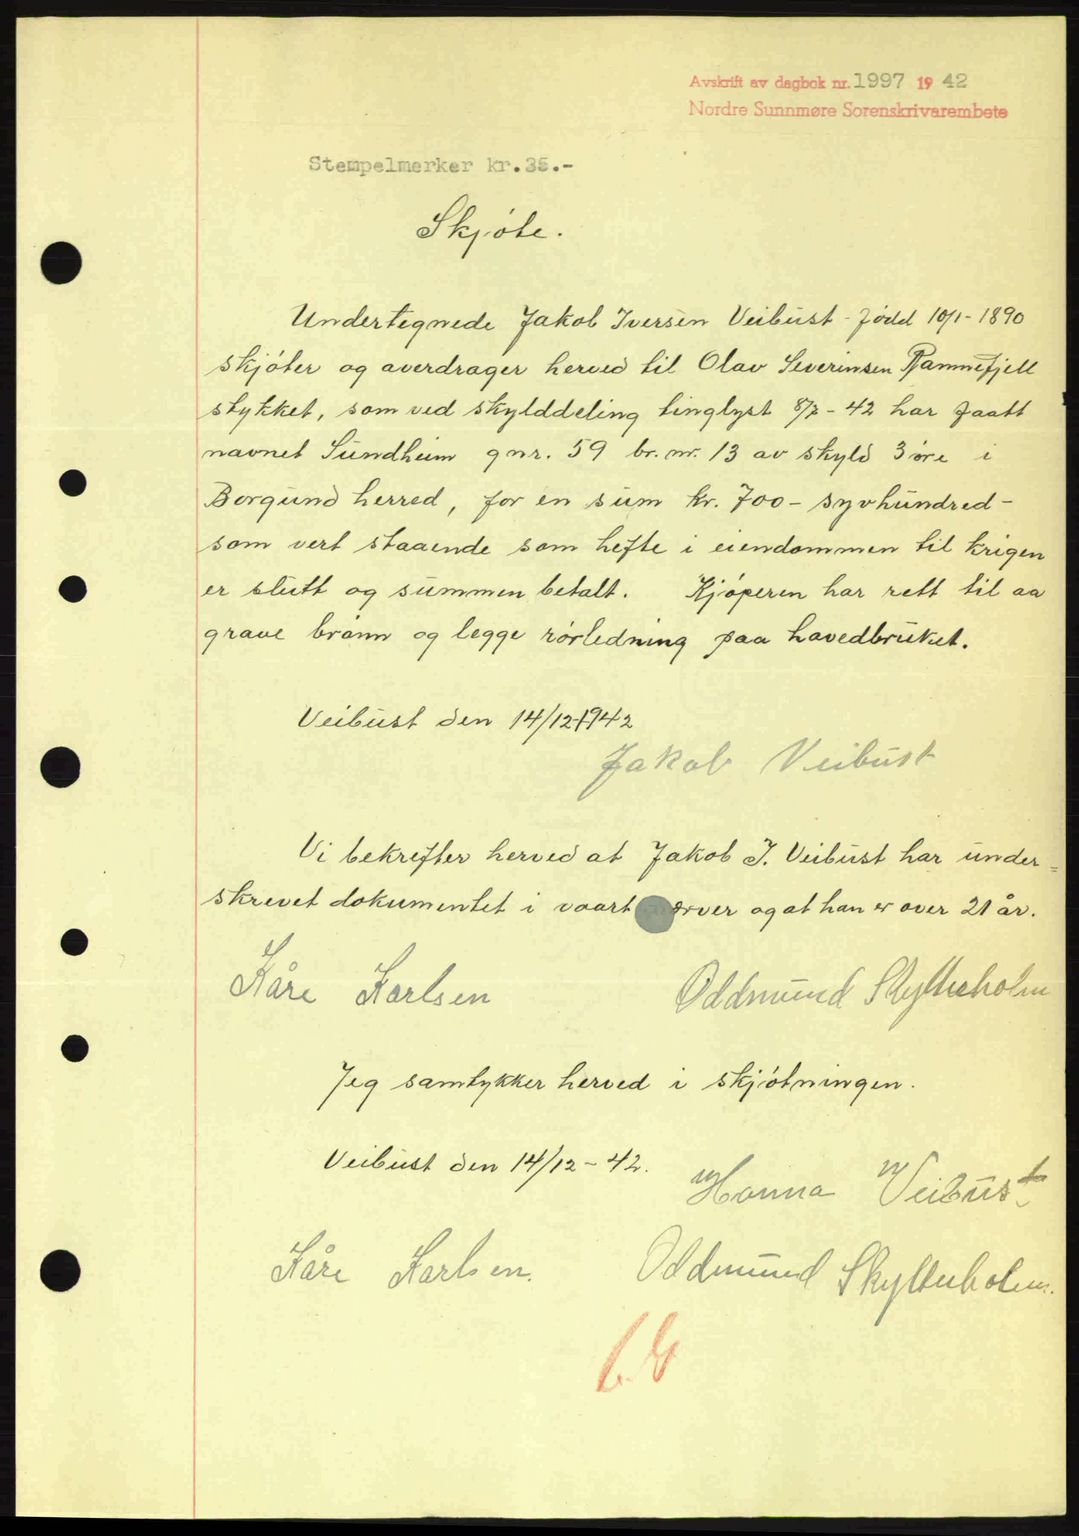 Avskrift av dagbok nr. 1997 19 42
Nordre Sunnmøre Sorenskrivarembete
Stempelmerker kr.35.-
Skjøte.
Undertegnede Jakob Iversen Veibust - født 10/1-1890
skjøter og averdrager herved til Olav Severinsen Ramnefjell
stykket, som ved skylddeling tinglyst 8/7-42 har faatt
navnet Sundheim gnr. 59 br. nr. 13 av skyld 3 øre i
Borgund herred, for en sum kr. 700- syvhundred-
som vert staaende som hefte i eiendommen til krigen
er slutt og summen betalt. Kjøperen har rett til aa
grave brønn og legge rørledning paa hovedbruket.
Veibust den 14/12-1942
Jakob Veibust
Vi bekrefter herved at Jakob I. Veibust har under=
skrevet dokumentet i vaart nærver og at han er over 21 år.
Kåre Karlsen Oddmund Skytterholm
Jeg samtykker herved i skjøtningen.
Veibust den 14/12-42.
Hanna Veibust
Kåre Karlsen. Oddmund Skytterholm.